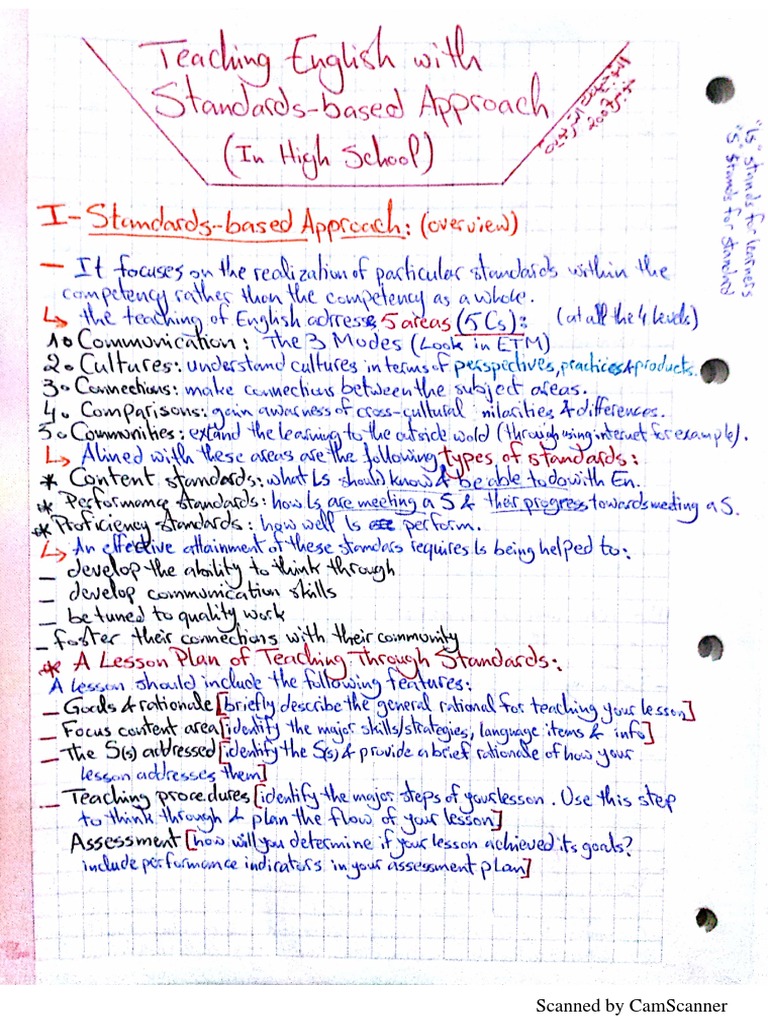 Teaching English with
Standards-based Approach
(In High School)
التوجيهات التربوية
نونبر 2007
"Ls" stands for learners
"S" stands for standard
I- Standards-based Approach: (overview)
— It focuses on the realization of particular standards within the
competency rather than the competency as a whole.
↳ the teaching of English adrress 5 areas (5 Cs): (at all the 4 levels)
1. Communication: The 3 Modes (Look in ETM)
2. Cultures: understand cultures in terms of perspectives, practices & products.
3. Connections: make connections between the subject areas.
4. Comparisons: gain awarness of cross-cultural milarities & differences.
5. Communities: expand the learning to the outside wold (through using internet for example).
↳ Alined with these areas are the following types of standards:
* Content standards: what Ls should know & be able to do with En.
* Performance standards: how Ls are meeting a S & their progress towards meeting a S.
* Proficiency standards: how well Ls perform.
↳ An effective attainment of these standars requires Ls being helped to:
— develop the ability to think through
— develop communication skills
— be tuned to quality work
— foster their connections with their community
* A Lesson Plan of Teaching Through Standards:
A lesson should include the following features:
— Goals & rationale [briefly describe the general rational for teaching your lesson]
— Focus content area [identify the major skills/strategies, language items & info]
— The S(s) addressed [identify the S(s) & provide a brief rationale of how your
lesson addresses them]
— Teaching procedures [identify the major steps of your lesson. Use this step
to think through & plan the flow of your lesson]
Assessment [how will you determine if your lesson achieved its goals?
include performance indicators in your assessment plan]
Scanned by CamScanner